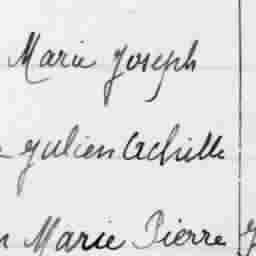 Marie Joseph
Julien Achille
Marie Pierre